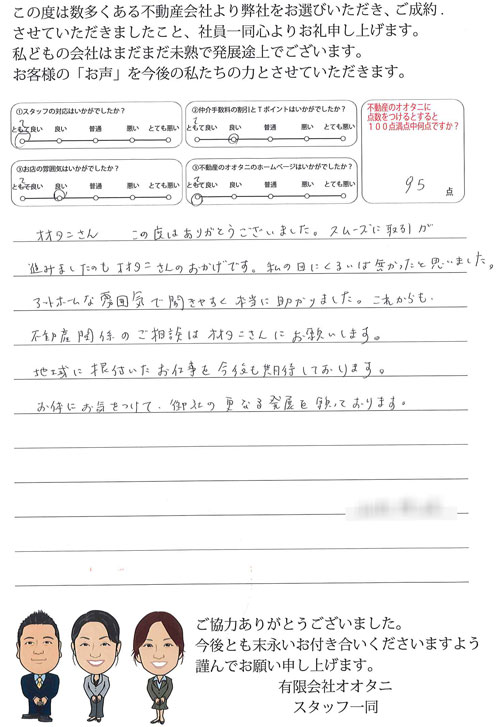 この度は数多くある不動産会社より弊社をお選びいただき、ご成約.
させていただきましたこと、社員一同心よりお礼申し上げます。
私どもの会社はまだまだ未熟で発展途上でございます。
お客様の「お声」を今後の私たちの力とさせていただきます。
①スタッフの対応はいかがでしたか？
とても良い 良い 普通 悪い とても悪い
②仲介手数料の割引とTポイントはいかがでしたか？
とても良い 良い 普通 悪い とても悪い
③お店の雰囲気はいかがでしたか？
とても良い 良い 普通 悪い とても悪い
③不動産のオオタニのホームページはいかがでしたか？
とても良い 良い 普通 悪い とても悪い
不動産のオオタニに
点数をつけるとすると
１００点満点中何点ですか？
95 点
オオタニさん この度はありがとうございました。スムーズに取引が
進みましたのもオオタニさんのおかげです。私の目にくるいは無かったと思いました。
アットホームな雰囲気で聞きやすく本当に助かりました。これからも、
不動産関係のご相談はオオタニさんにお願いします。
地域に根付いたお仕事を今後も期待しております。
お体にお気をつけて、御社の更なる発展を願っております。
ご協力ありがとうございました。
今後とも末永いお付き合いくださいますよう
謹んでお願い申し上げます。
有限会社オオタニ
スタッフ一同